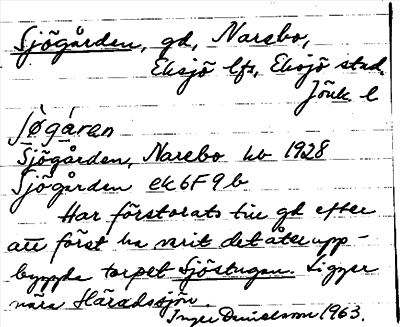 Sjögården, gd, Narebo,
Eksjö lfs, Eksjö stad,
Jönk l
Sjögården, Narebo kb 1928
Sjögården ek 6F9b
Har förstorats till gd efter
att först ha varit det åter upp-
byggda torpet Sjöstugan. Ligger
nära Häradssjön.
Inger Danielsson 1963.